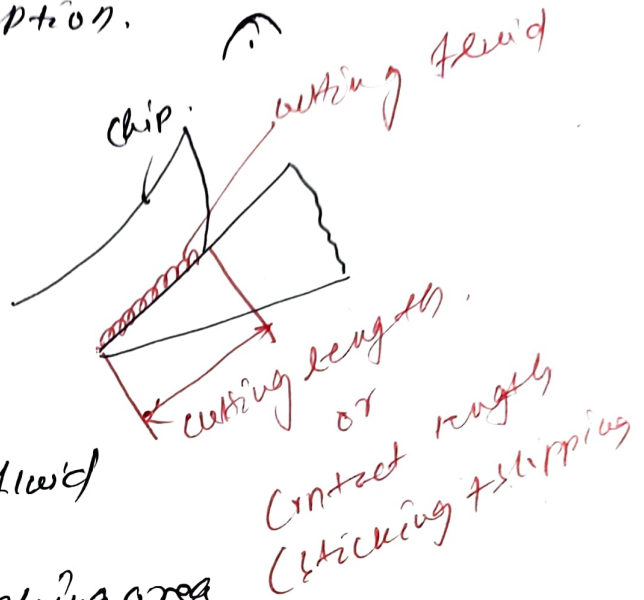 ption.
cutting fluid
chip.
cutting length.
or
Contact length
(sticking + slipping
fluid
area